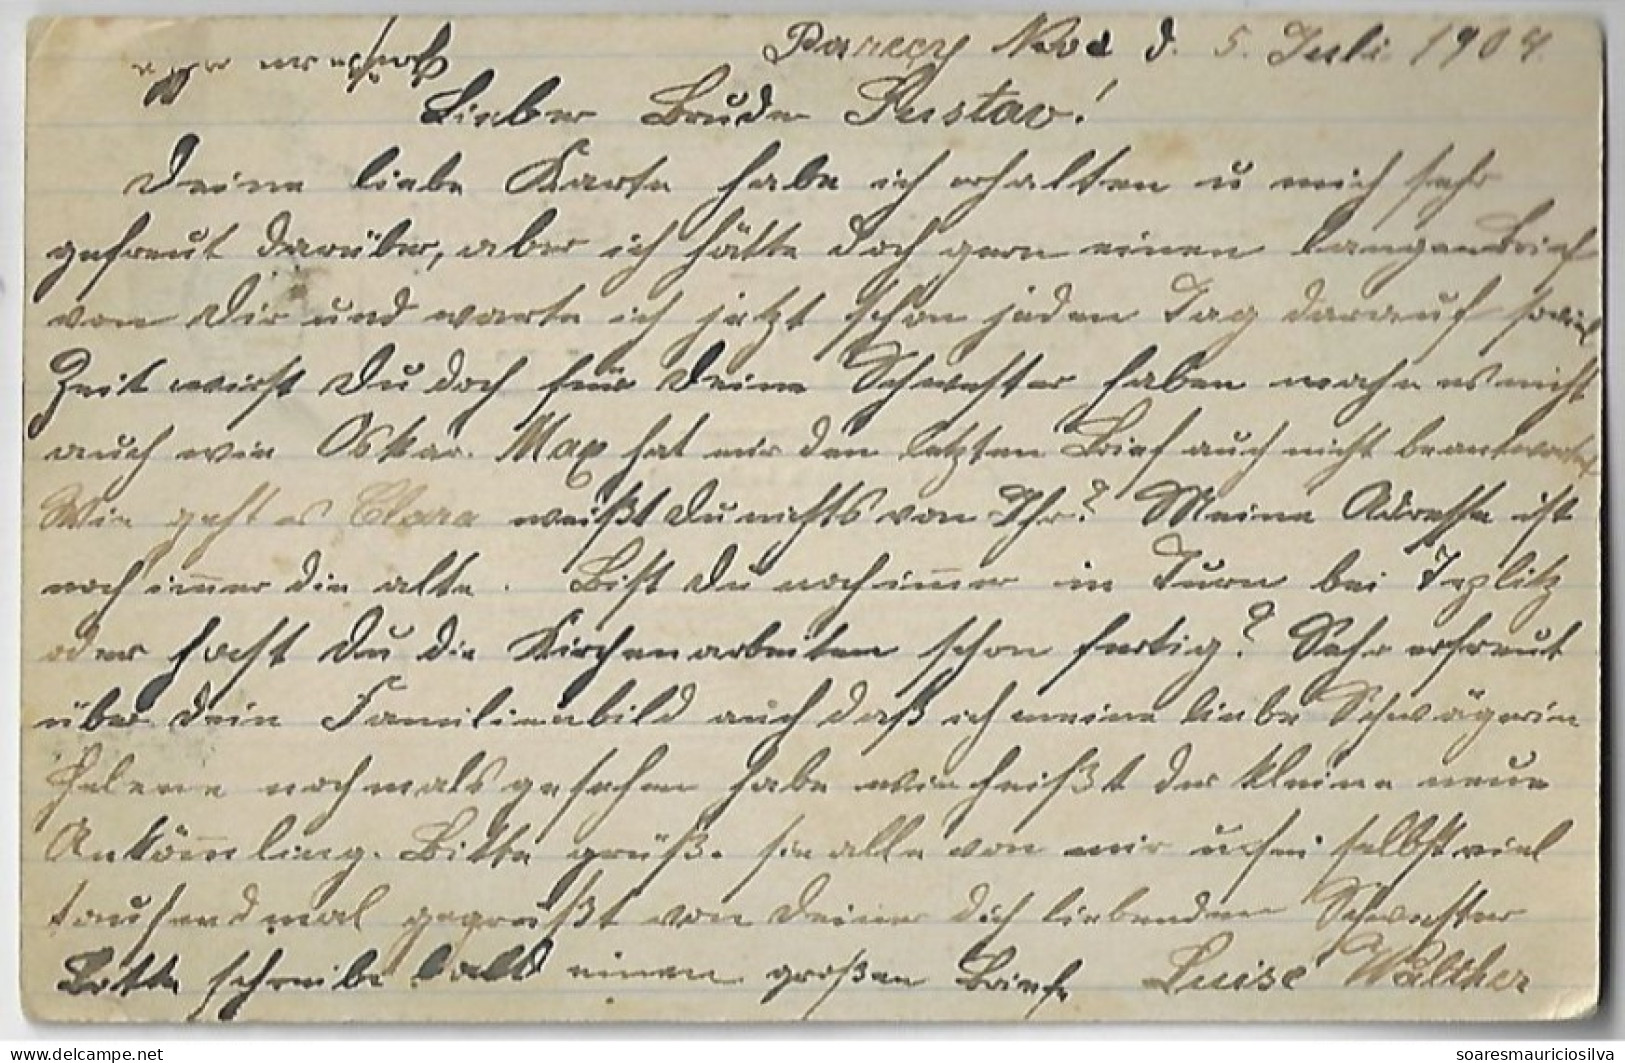 d. 5. Juli. 1904.
Lieber Bruder Gustav!
Deine liebe Karte habe ich erhalten u mich sehr
gefreut darüber, aber ich hätte doch gern einen langen Brief
von Dir und warte ich jetzt schon jeden Tag darauf soviel
Zeit wirst Du doch für Deine Schwester haben mache es nicht
auch wie Oskar. Max hat mir den letzten Brief auch nicht beantwortet
Wie geht es Clara weißt Du nichts von Ihr? Meine Adresse ist
noch im̄er die alte. Bist Du noch im̄er in Turn bei Teplitz
oder hast Du die Kirchenarbeiten schon fertig? Sehr erfreut
über dein Familienbild auch daß ich meine liebe Schwägerin
Helene nochmals gesehen habe wie heißt der kleine neue
Anköm̄ling. Bitte grüß. sie alle von mir u sei selbst viel
tausend mal gegrüßt von Deiner Dich liebenden Schwester
Bitte schreibe bald einen großen Brief Luise Walther
soaresmauriciosilva